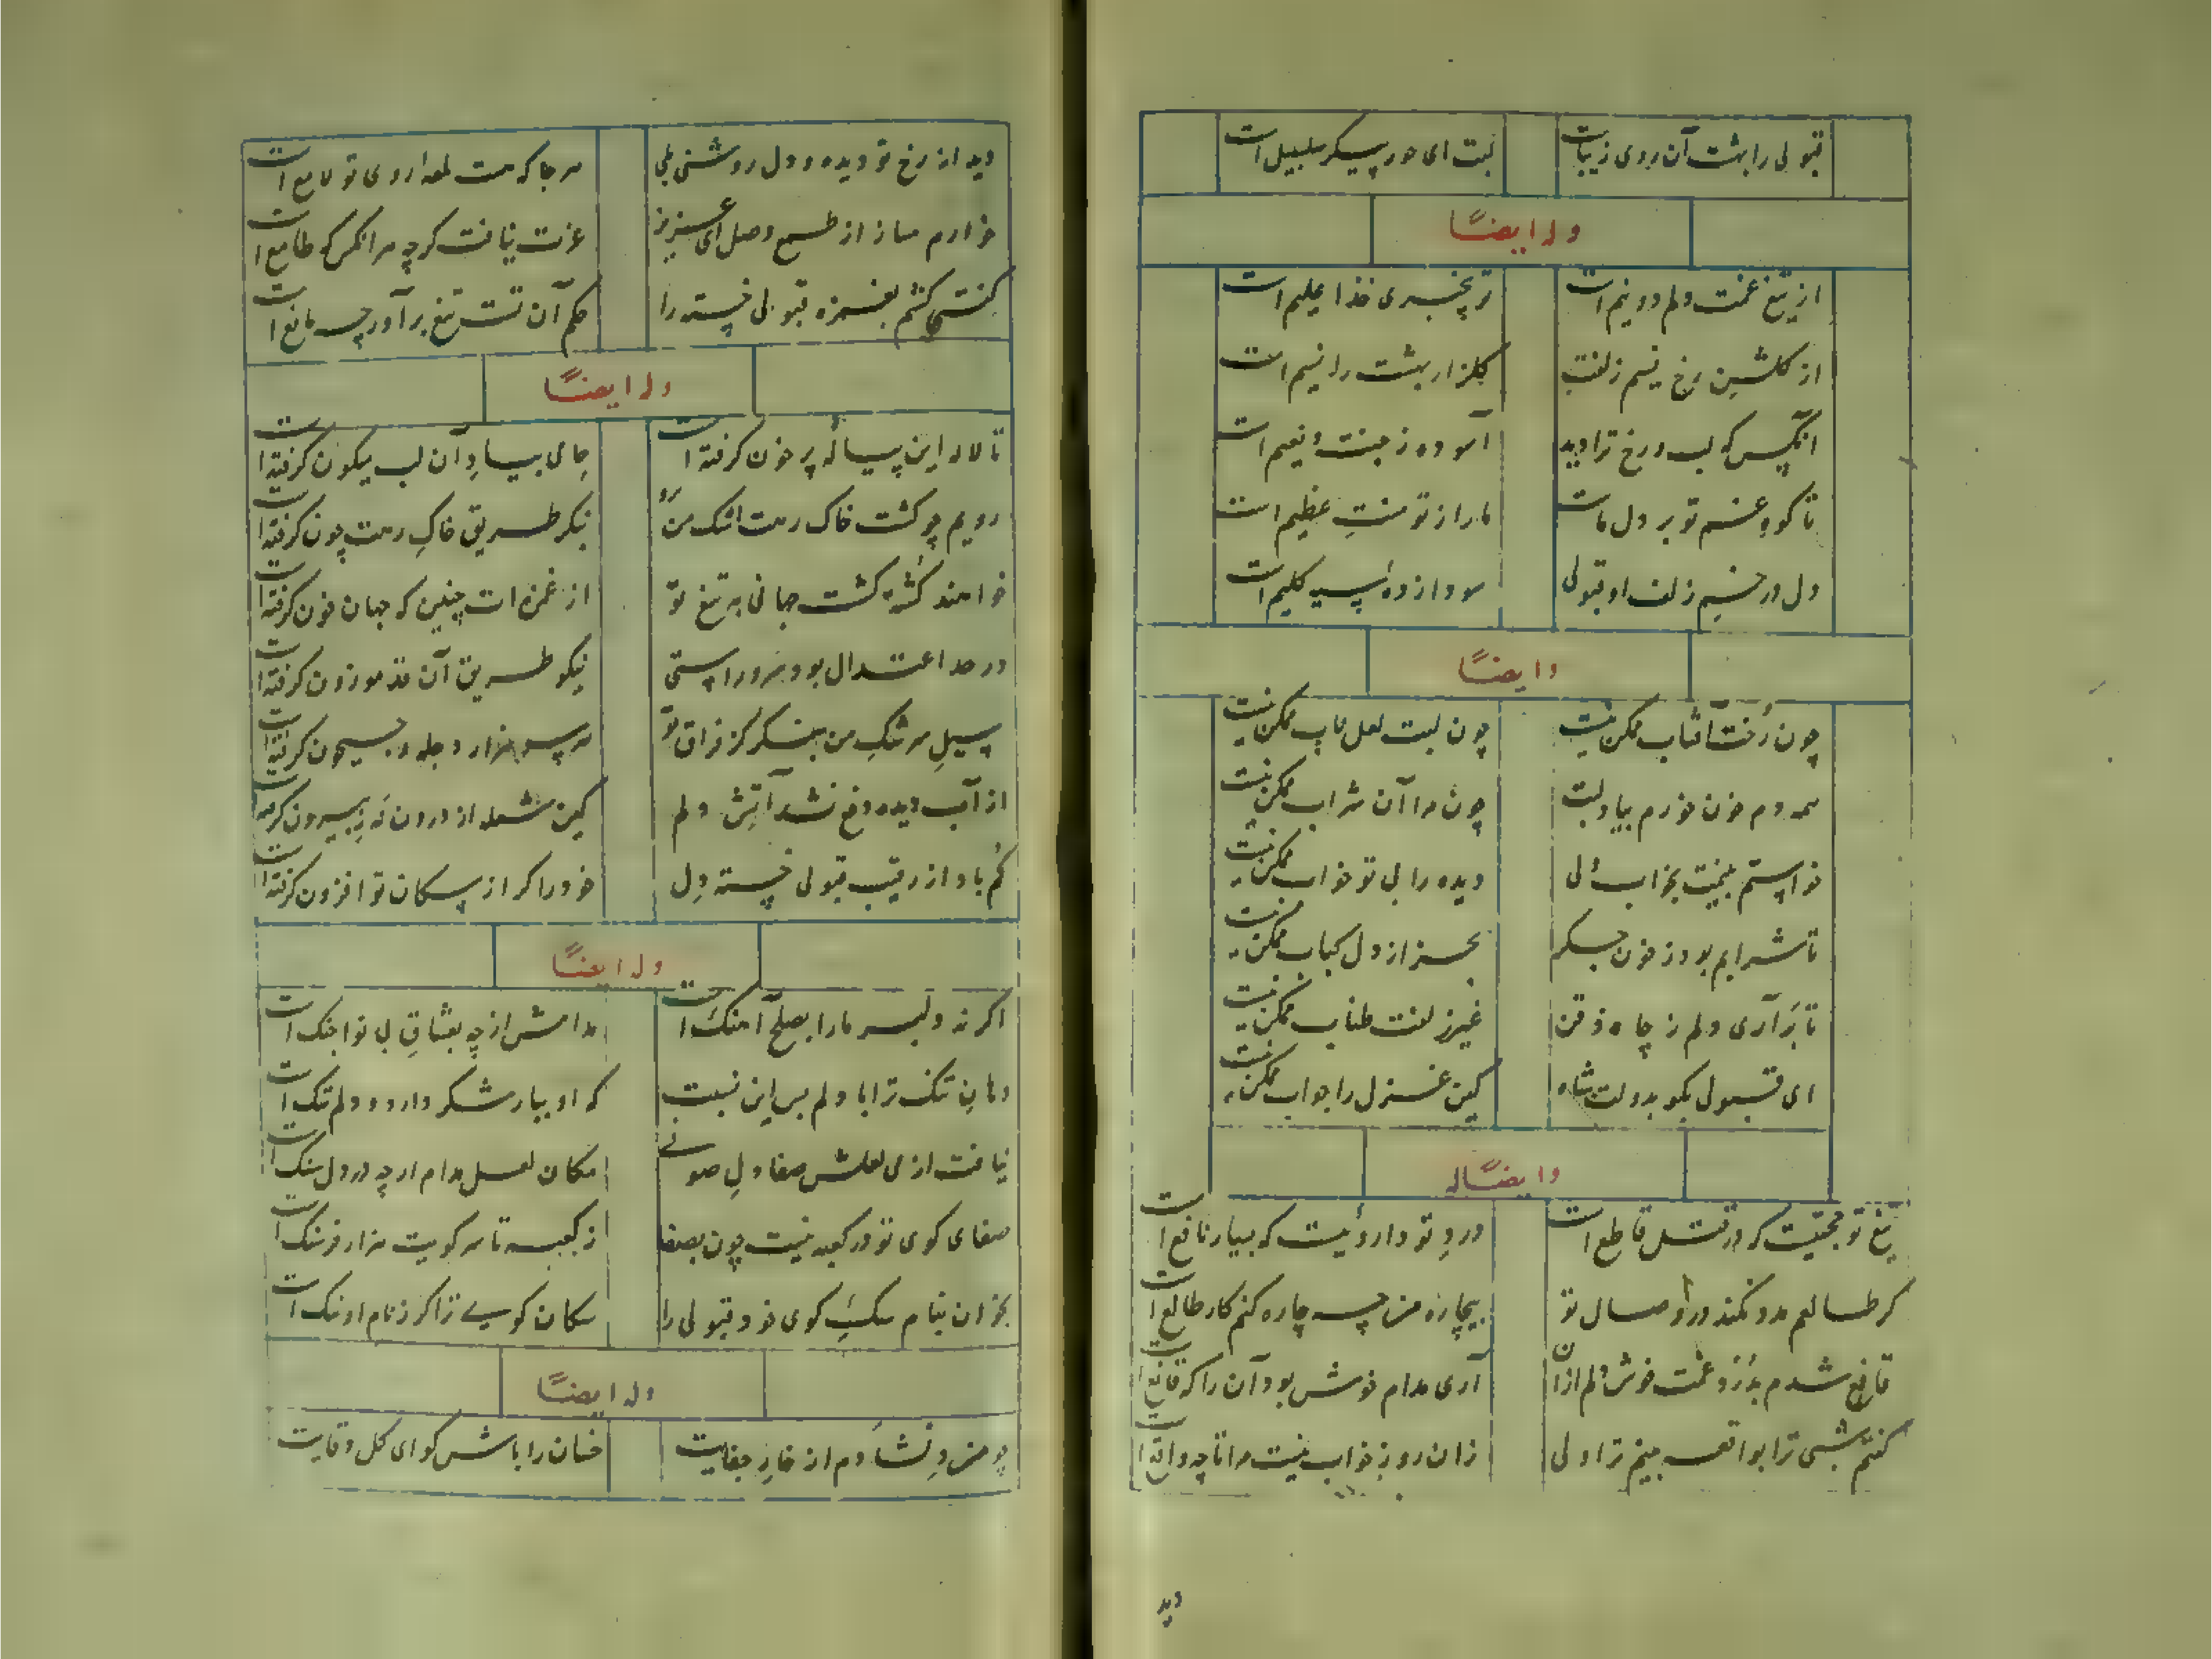 قبولی را بهشت آن روی زیباست    لبت ای حور پیکر سلسبیل است
وله ایضاً
از تیغ غمت دلم دو نیم است    تو بیخبری خدا علیم است
از گلشن رخ نسیم زلفت    گلزار بهشت را نسیم است
آنکس که لب و رخ ترا دید    آسوده ز جنت و نعیم است
تا کوه غم تو بر دل ماست    ما را ز تو منت عظیم است
دل در خم زلف او قبولی    سودازده سیه گلیم است
وایضاً
چون رخت آفتاب ممکن نیست    چون لبت لعل ناب ممکن نیست
همه دم خون خورم بیاد لبت    چون مرا آن شراب ممکن نیست
خواستم بینمت بخواب ولی    دیده را بی تو خواب ممکن نیست
تا شرابم بود ز خون جگر    بجز از دل کباب ممکن نیست
تا برآری دلم ز چاه ذقن    غیر زلفت طناب ممکن نیست
ای قبولی بگو بدولت شاه    کین غزل را جواب ممکن نیست
وایضاً له
تیغ تو حجتیست که در قتل قاطع است    درد تو داروئیست که بسیار نافع است
گر طالعم مدد نکند در وصال تو    بیچاره من چه چاره کنم کار طالع است
قانع شدم بدرد و غمت خوش دلم از آن    آری مدام خوش بود آن را که قانع است
گفتم شبی ترا بواقعه بینم ترا ولی    زان روز خواب نیست مرا تا چه واقع است
دید
دید از رخ تو دیده و دل روشنی بلی    هر جا که هست لمعه از روی تو لامع است
خوارم مساز از طمع وصل ای عزیز    عزت نیافت گرچه هر آنکس که طامع است
گفتی کشم بغمزه قبولی خسته را    حکم آن تست تیغ برآور چه مانع است
وله ایضاً
تا لاله این پیاله پر خون گرفته است    جامی بیاد آن لب میگون گرفته است
رویم چو گشت خاک رهت اشک من    بنگر طریق خاک رهت چون گرفته است
خواهند کشته گشت جهانی به تیغ تو    از غمزه ات چنین که جهان خون گرفته است
در حد اعتدال بود سرو راستی    نیکو طریق آن قد موزون گرفته است
سیل سرشک من بنگر کز فراق تو    هر سو هزار دجله و جیحون گرفته است
از آب دیده دفع نشد آتش دلم    کین شعله از درون نه ز بیرون گرفته است
گم باد از رقیب قبولی خسته دل    خود را گر از سگان تو افزون گرفته است
وله ایضاً
اگر نه دلبر ما را بصلح آهنگ است    مدامش از چه بعشاق بی نوا جنگ است
دهان تنگ ترا با دلم بس این نسبت    که او بیار شکر دارد و دلم تنگ است
نیافت از می لعلش صفا دل صوفی    مکان لعل مدام ارچه در دل سنگ است
صفای کوی تو در کعبه نیست چون بصفا    ز کعبه تا سر کویت هزار فرسنگ است
بخوان بنام سگ کوی خود قبولی را    سگان کوی ترا گر ز نام او ننگ است
وله ایضاً
چو من دلشادم از خار جفایت    خسان را باش گو ای گل وفایت